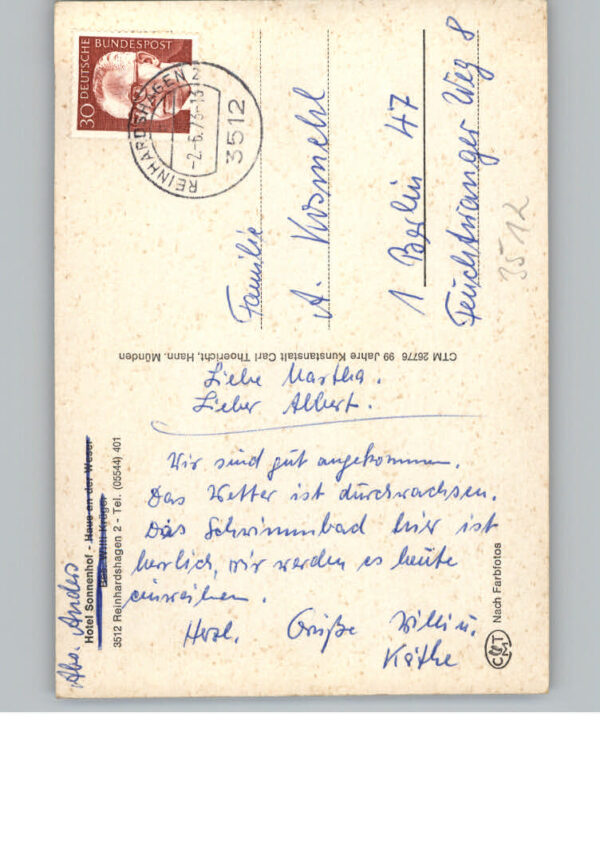 30 DEUTSCHE BUNDESPOST
REINHARDSHAGEN 2
-2.-6.73-13
3512
Familie
A. Kosmehl
1 Berlin 47
Feuchtwanger Weg 8
3512
CTM 26776 99 Jahre Kunstanstalt Carl Thoericht, Hann. Münden
Liebe Martha.
Lieber Albert.
Wir sind gut angekommen.
Das Wetter ist durchwachsen.
Das Schwimmbad hier ist
herrlich, wir werden es heute
einweihen.
Herzl. Grüße Willi u.
Käthe
Abs. Anders
Hotel Sonnenhof - Haus an der Weser
Bes. Willi Kröger
3512 Reinhardshagen 2 - Tel. (05544) 401
Nach Farbfotos
CTM